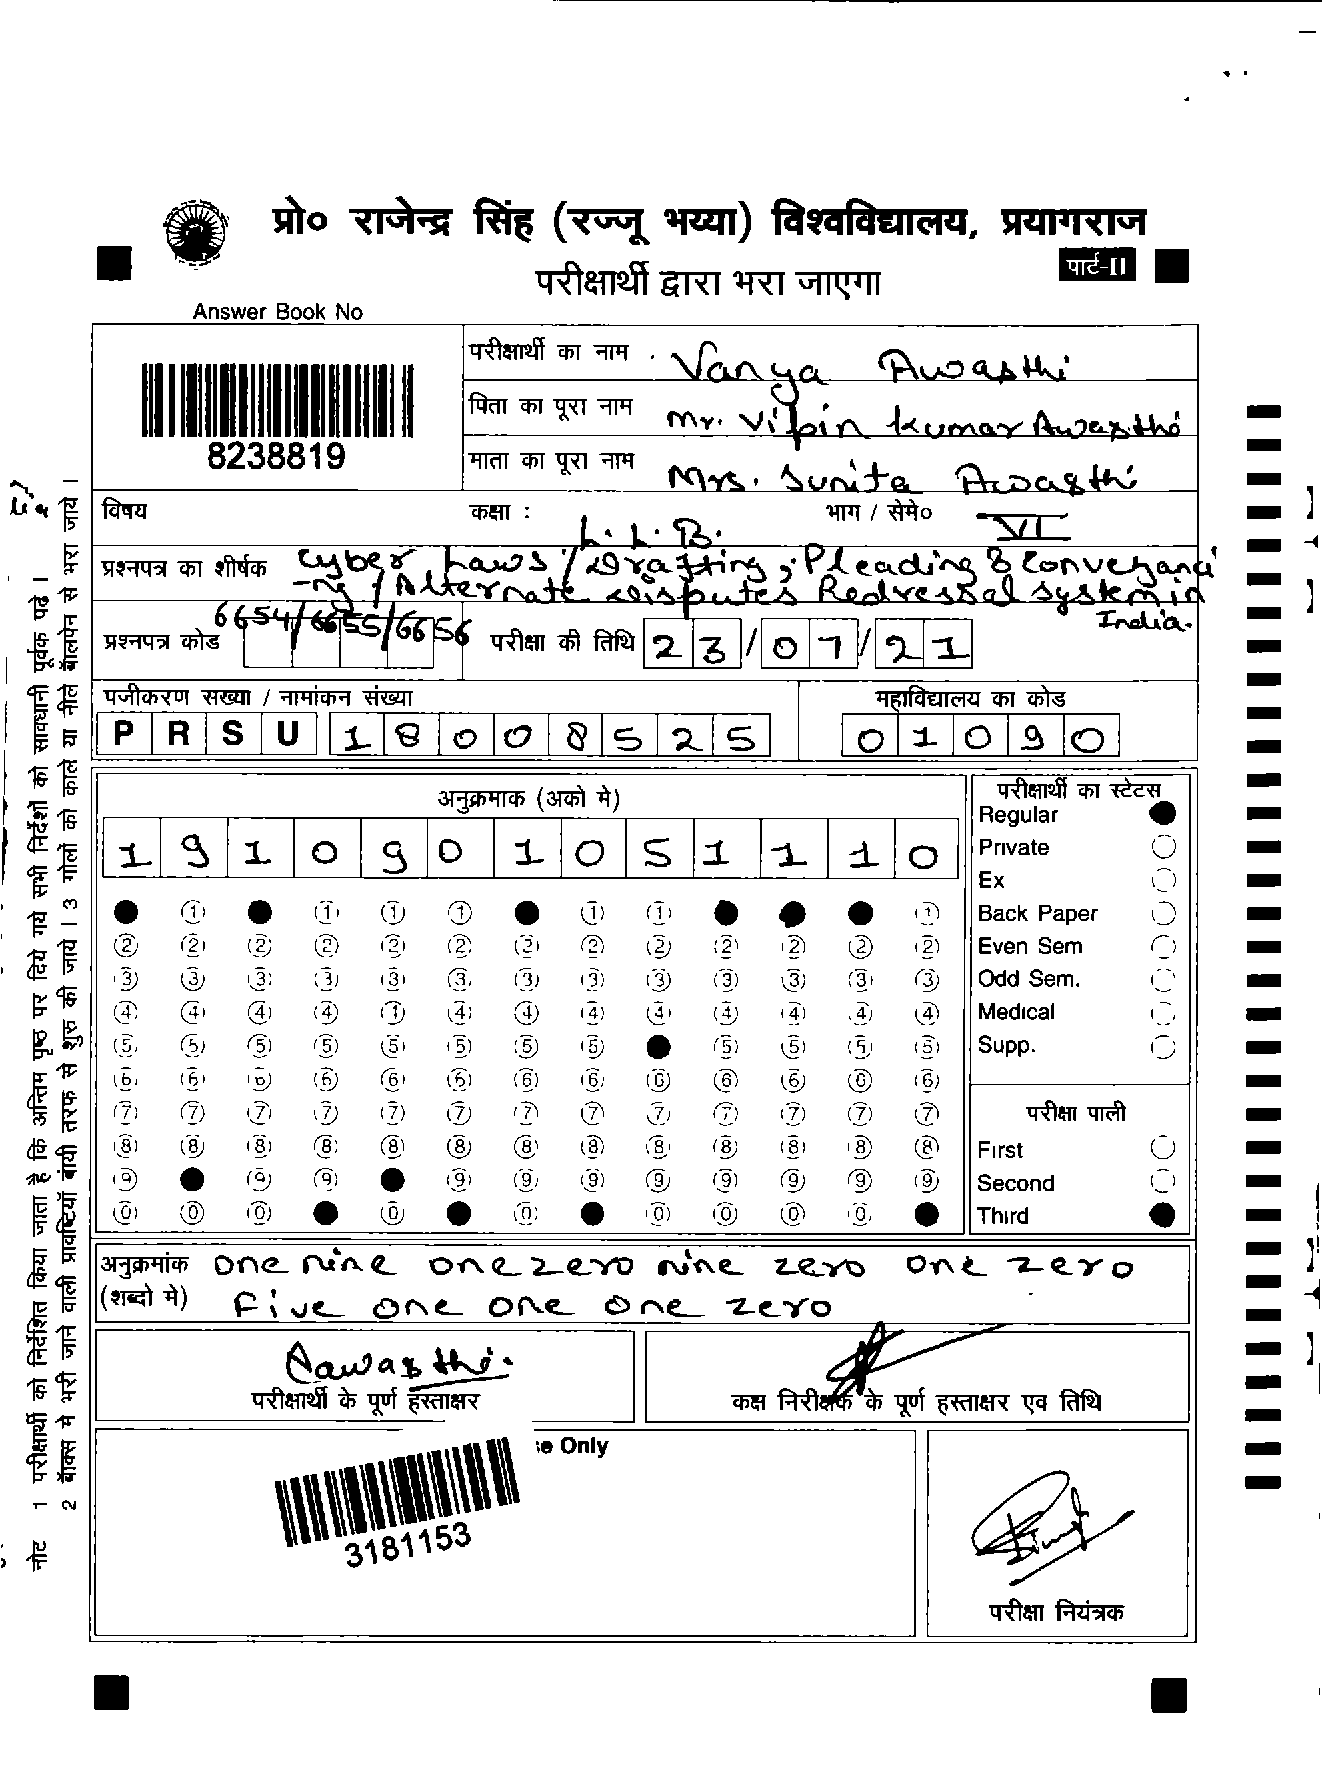 प्रो० राजेन्द्र सिंह (रज्जू भय्या) विश्वविद्यालय, प्रयागराज
परीक्षार्थी द्वारा भरा जाएगा
पार्ट-II
Answer Book No
8238819
परीक्षार्थी का नाम Vanya Awasthi
पिता का पूरा नाम Mr. Vipin Kumar Awasthi
माता का पूरा नाम Mrs. Sunita Awasthi
विषय कक्षा : L.L.B. भाग / सेमे० VI
प्रश्नपत्र का शीर्षक Cyber Laws / Drafting, Pleading & Conveyanci
-ng / Alternate Disputes Redressal System in
India.
प्रश्नपत्र कोड 6654/6655/6656 परीक्षा की तिथि 23/07/21
पजीकरण सख्या / नामांकन संख्या महाविद्यालय का कोड
PRSU 18008525 01090
अनुक्रमाक (अको मे)
1910901051110
1 1 1 1 1 1 1
2 2 2 2 2 2 2 2 2 2 2 2 2
3 3 3 3 3 3 3 3 3 3 3 3 3
4 4 4 4 4 4 4 4 4 4 4 4 4
5 5 5 5 5 5 5 5 5 5 5 5
6 6 6 6 6 6 6 6 6 6 6 6 6
7 7 7 7 7 7 7 7 7 7 7 7 7
8 8 8 8 8 8 8 8 8 8 8 8 8
9 9 9 9 9 9 9 9 9 9 9
0 0 0 0 0 0 0 0 0
परीक्षार्थी का स्टेटस
Regular
Private
Ex
Back Paper
Even Sem
Odd Sem.
Medical
Supp.
परीक्षा पाली
First
Second
Third
अनुक्रमांक one nine one zero nine zero one zero
(शब्दो मे) Five one one one zero
Aawasthi.
परीक्षार्थी के पूर्ण हस्ताक्षर
कक्ष निरीक्षक के पूर्ण हस्ताक्षर एव तिथि
se Only
3181153
परीक्षा नियंत्रक
नोट 1 परीक्षार्थी को निर्देशित किया जाता है कि अन्तिम पृष्ठ पर दिये गये सभी निर्देशों को सावधानी पूर्वक पढे।
2 बॉक्स मे भरी जाने वाली प्रावष्टियाँ बांयी तरफ से शुरु की जाये। 3 गोलों को काले या नीले बॉलपेन से भरा जाये।